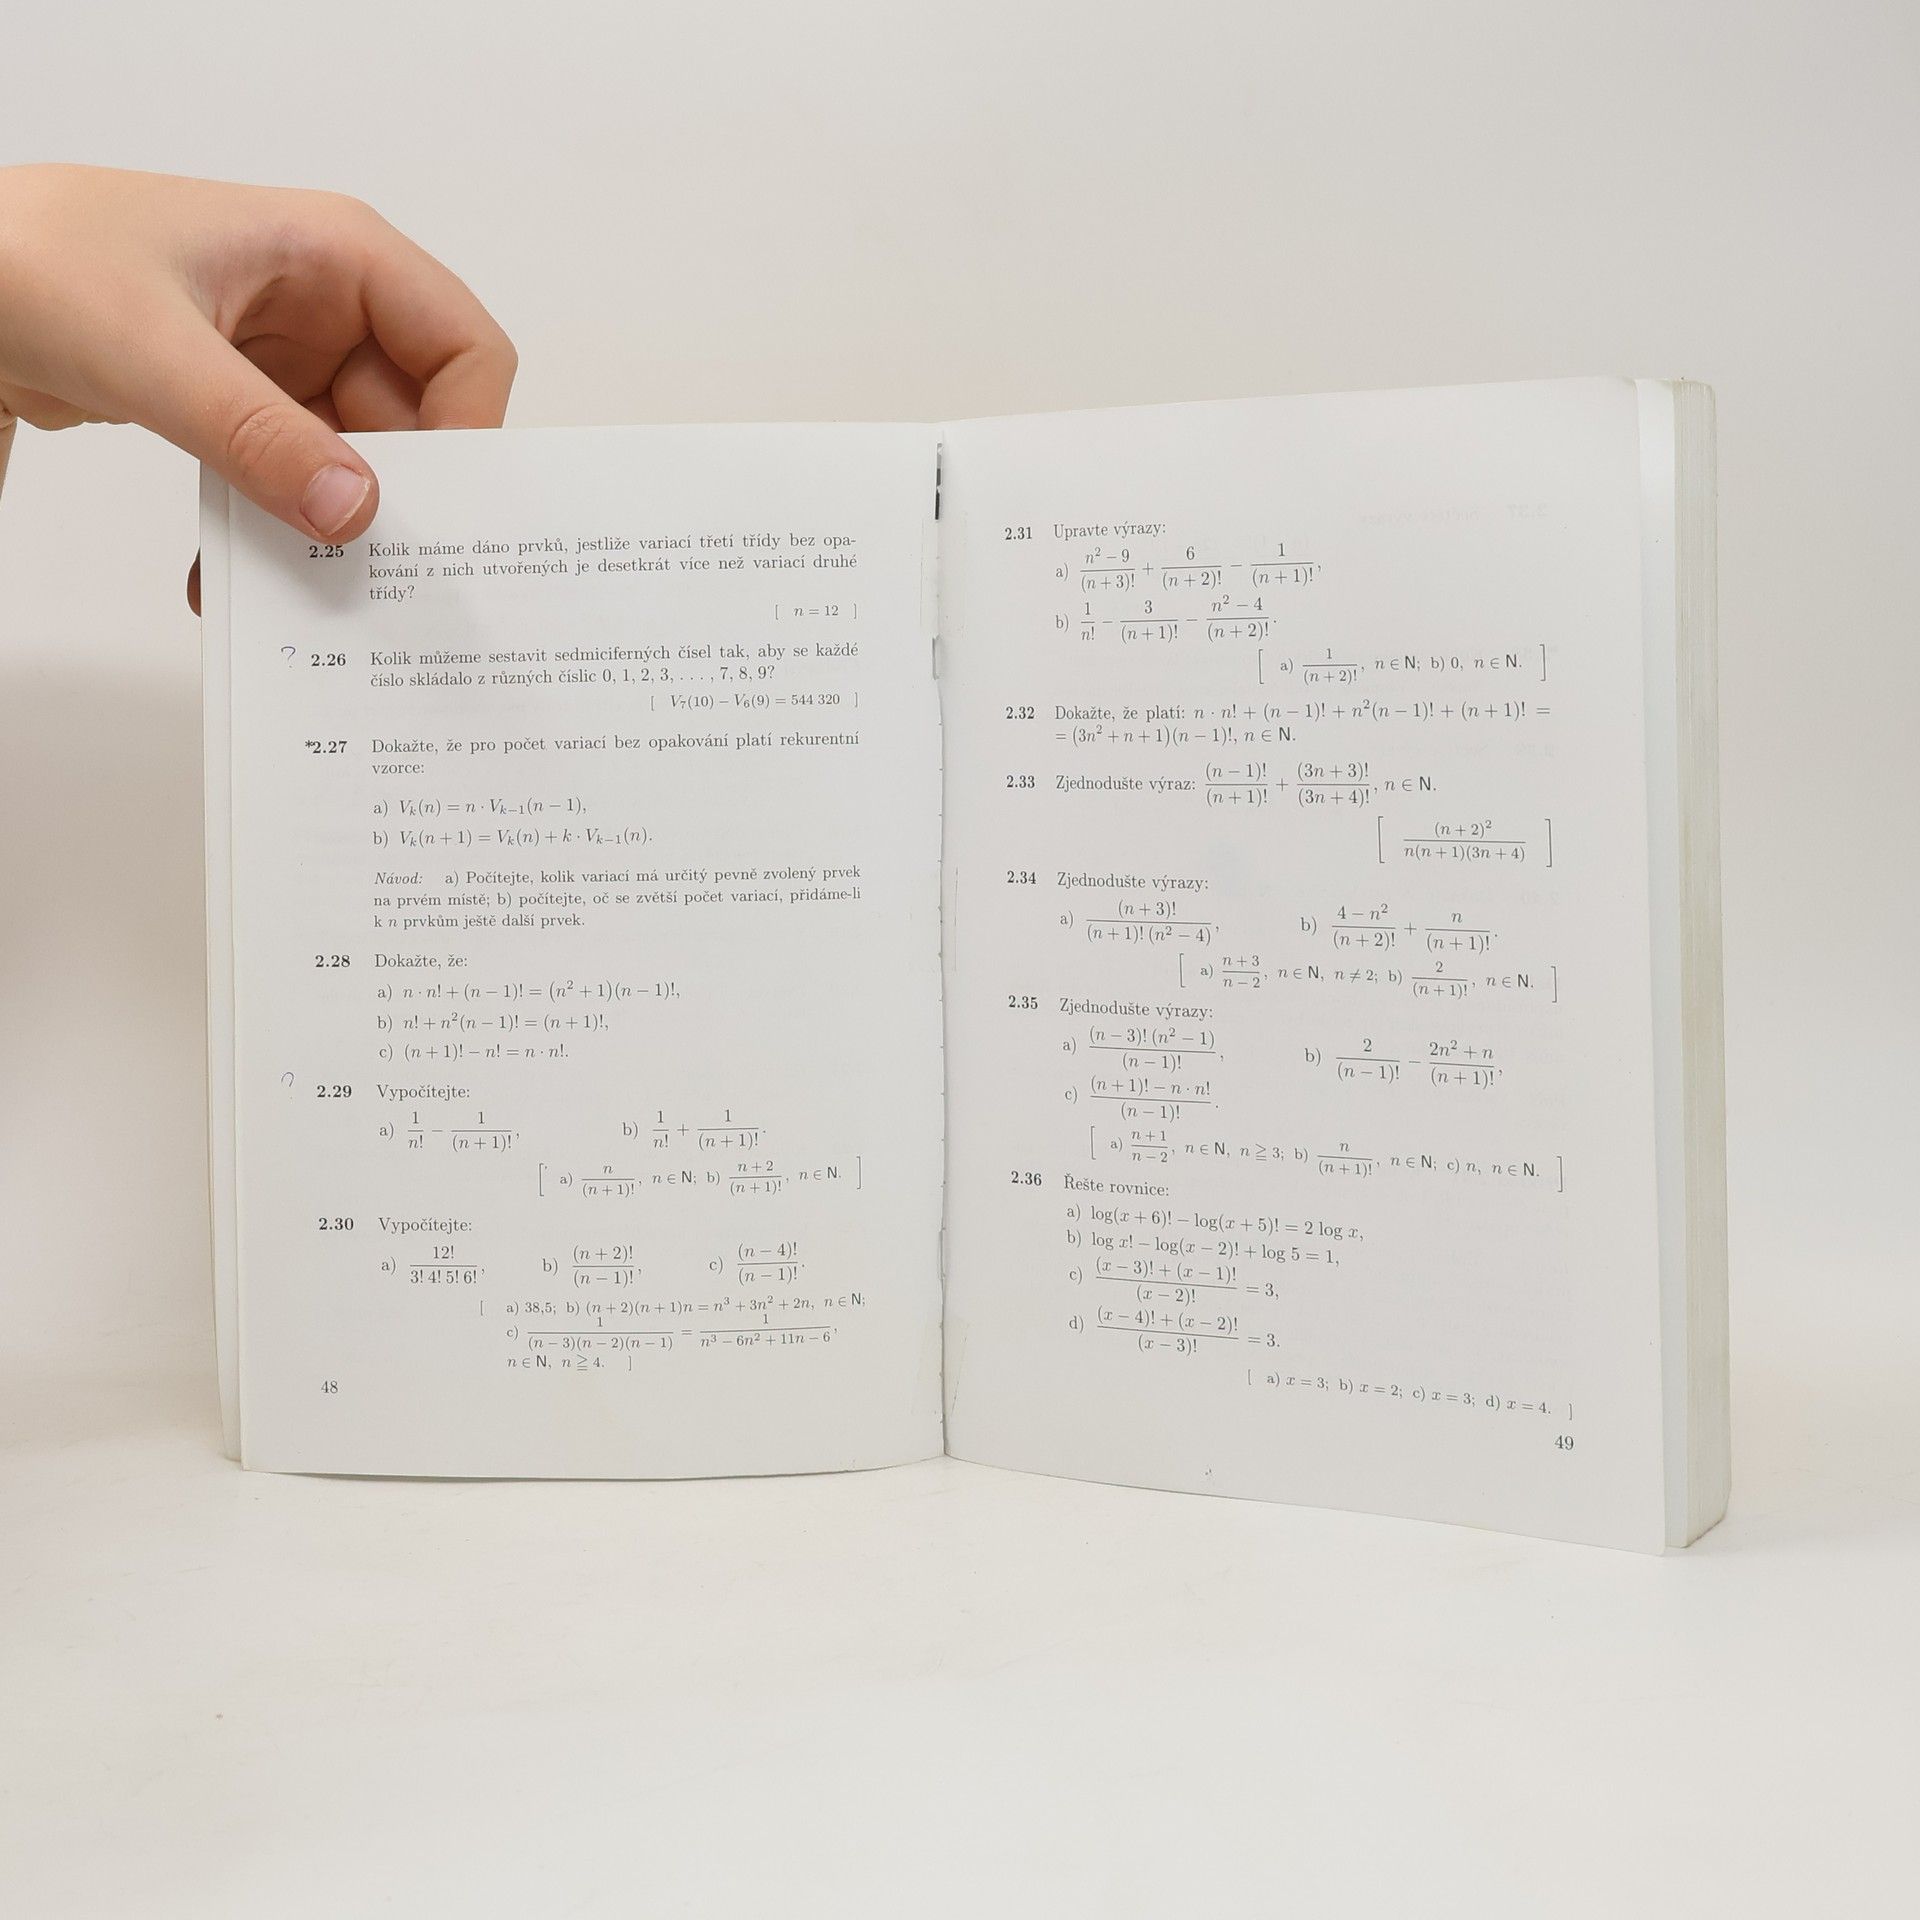 2.25 Kolik máme dáno prvků, jestliže variací třetí třídy bez opa-
kování z nich utvořených je desetkrát více než variací druhé
třídy?
[ n = 12 ]
? 2.26 Kolik můžeme sestavit sedmiciferných čísel tak, aby se každé
číslo skládalo z různých číslic 0, 1, 2, 3, . . . , 7, 8, 9?
[ V₇(10) − V₆(9) = 544 320 ]
*2.27 Dokažte, že pro počet variací bez opakování platí rekurentní
vzorce:
a) Vₖ(n) = n · Vₖ₋₁(n − 1),
b) Vₖ(n + 1) = Vₖ(n) + k · Vₖ₋₁(n).
Návod: a) Počítejte, kolik variací má určitý pevně zvolený prvek
na prvém místě; b) počítejte, oč se zvětší počet variací, přidáme-li
k n prvkům ještě další prvek.
2.28 Dokažte, že:
a) n · n! + (n − 1)! = (n² + 1)(n − 1)!,
b) n! + n²(n − 1)! = (n + 1)!,
c) (n + 1)! − n! = n · n!.
? 2.29 Vypočítejte:
a) 1/n! − 1/(n + 1)!, b) 1/n! + 1/(n + 1)!.
[ a) n/(n + 1)!, n ∈ N; b) (n + 2)/(n + 1)!, n ∈ N. ]
2.30 Vypočítejte:
a) 12!/(3! 4! 5! 6!), b) (n + 2)!/(n − 1)!, c) (n − 4)!/(n − 1)!.
[ a) 38,5; b) (n + 2)(n + 1)n = n³ + 3n² + 2n, n ∈ N;
c) 1/((n − 3)(n − 2)(n − 1)) = 1/(n³ − 6n² + 11n − 6),
n ∈ N, n ≧ 4. ]
48
2.31 Upravte výrazy:
a) (n² − 9)/(n + 3)! + 6/(n + 2)! − 1/(n + 1)!,
b) 1/n! − 3/(n + 1)! − (n² − 4)/(n + 2)!.
[ a) 1/(n + 2)!, n ∈ N; b) 0, n ∈ N. ]
2.32 Dokažte, že platí: n · n! + (n − 1)! + n²(n − 1)! + (n + 1)! =
= (3n² + n + 1)(n − 1)!, n ∈ N.
2.33 Zjednodušte výraz: (n − 1)!/(n + 1)! + (3n + 3)!/(3n + 4)!, n ∈ N.
[ (n + 2)²/(n(n + 1)(3n + 4)) ]
2.34 Zjednodušte výrazy:
a) (n + 3)!/((n + 1)! (n² − 4)), b) (4 − n²)/(n + 2)! + n/(n + 1)!.
[ a) (n + 3)/(n − 2), n ∈ N, n ≠ 2; b) 2/(n + 1)!, n ∈ N. ]
2.35 Zjednodušte výrazy:
a) (n − 3)! (n² − 1)/(n − 1)!, b) 2/(n − 1)! − (2n² + n)/(n + 1)!,
c) ((n + 1)! − n · n!)/(n − 1)!.
[ a) (n + 1)/(n − 2), n ∈ N, n ≧ 3; b) n/(n + 1)!, n ∈ N; c) n, n ∈ N. ]
2.36 Řešte rovnice:
a) log(x + 6)! − log(x + 5)! = 2 log x,
b) log x! − log(x − 2)! + log 5 = 1,
c) ((x − 3)! + (x − 1)!)/(x − 2)! = 3,
d) ((x − 4)! + (x − 2)!)/(x − 3)! = 3.
[ a) x = 3; b) x = 2; c) x = 3; d) x = 4. ]
49